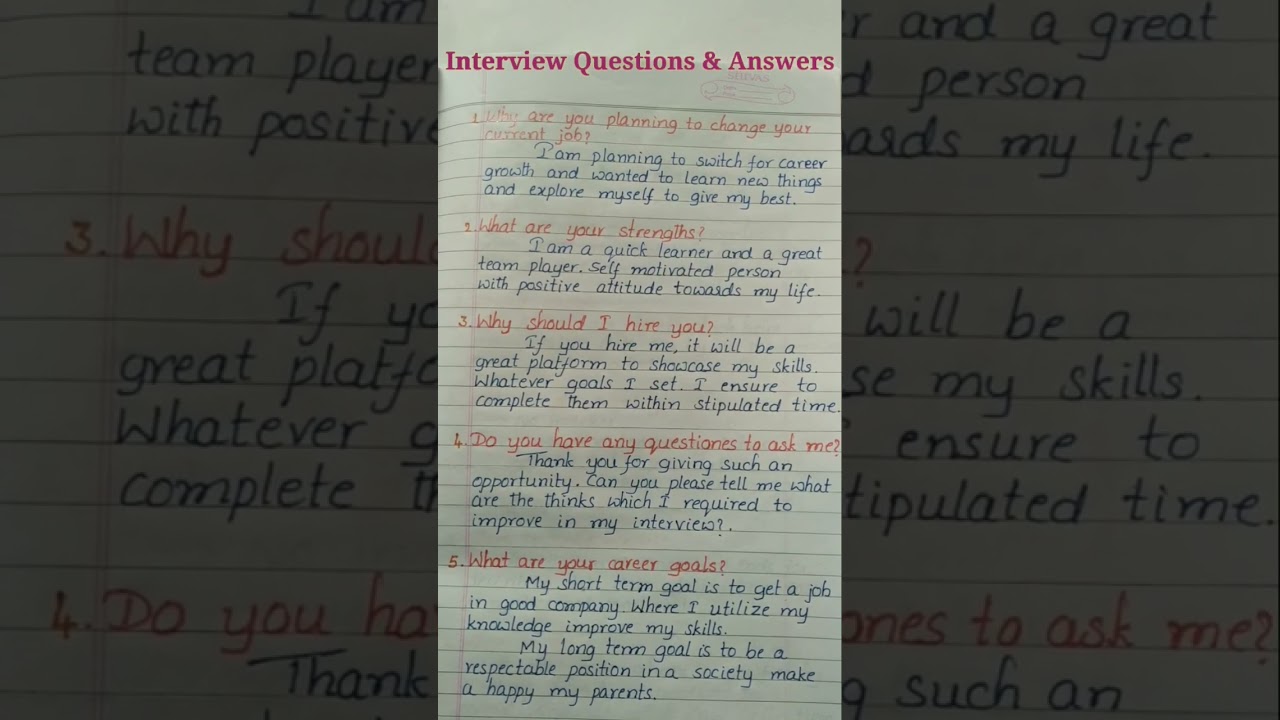 Interview Questions & Answers
SHIVAS
1. Why are you planning to change your
current job?
I am planning to switch for career
growth and wanted to learn new things
and explore myself to give my best.
2. What are your strengths?
I am a quick learner and a great
team player. Self motivated person
with positive attitude towards my life.
3. Why should I hire you?
If you hire me, it will be a
great platform to showcase my skills.
Whatever goals I set. I ensure to
complete them within stipulated time.
4. Do you have any questiones to ask me?
Thank you for giving such an
opportunity. Can you please tell me what
are the thinks which I required to
improve in my interview?.
5. What are your career goals?
My short term goal is to get a job
in good company. Where I utilize my
knowledge improve my skills.
My long term goal is to be a
respectable position in a society make
a happy my parents.